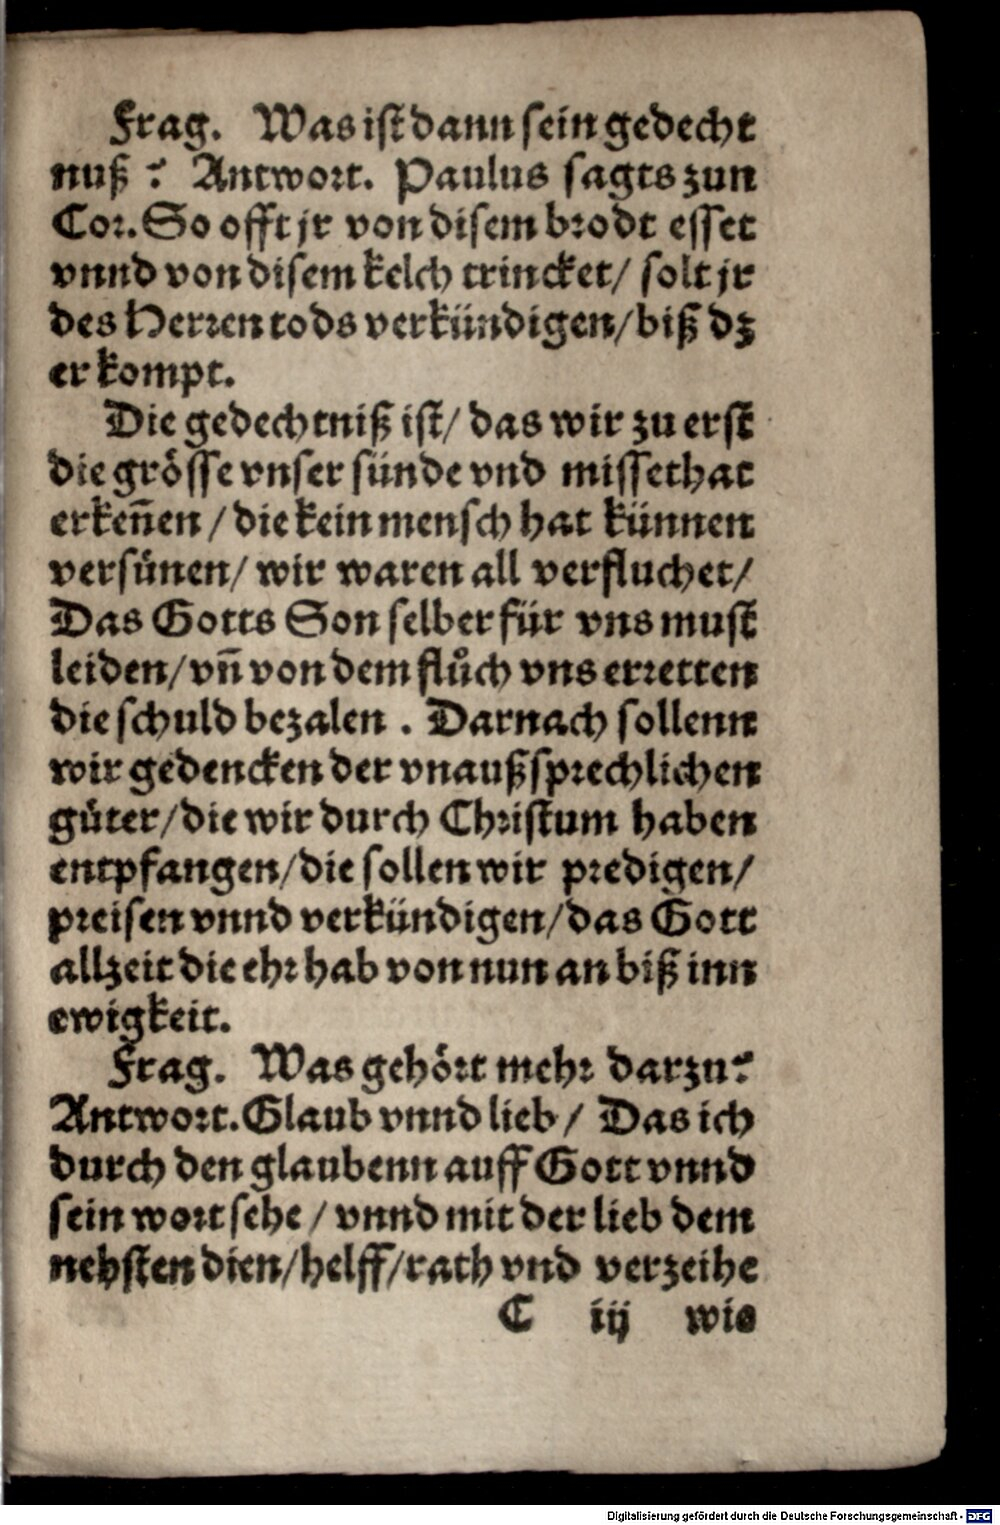 Frag. Was ist dann sein gedecht
nuß? Antwort. Paulus sagts zun
Cor. So offt jr von disem brodt esset
vnnd von disem kelch trincket/ solt jr
des Herren tods verkündigen/ biß dz
er kompt.
Die gedechtniß ist/ das wir zu erst
die grösse vnser sünde vnd missethat
erkeñen/ die kein mensch hat künnen
versünen/ wir waren all verfluchet/
Das Gotts Son selber für vns must
leiden/ vñ von dem flůch vns erretten
die schuld bezalen. Darnach sollenn
wir gedencken der vnaußsprechlichen
güter/ die wir durch Christum haben
entpfangen/ die sollen wir predigen/
preisen vnnd verkündigen/ das Gott
allzeit die ehr hab von nun an biß inn
ewigkeit.
Frag. Was gehört mehr darzu?
Antwort. Glaub vnnd lieb/ Das ich
durch den glaubenn auff Gott vnnd
sein wort sehe/ vnnd mit der lieb dem
nehsten dien/ helff/ rath vnd verzeihe
C iij wie
Digitalisierung gefördert durch die Deutsche Forschungsgemeinschaft - DFG